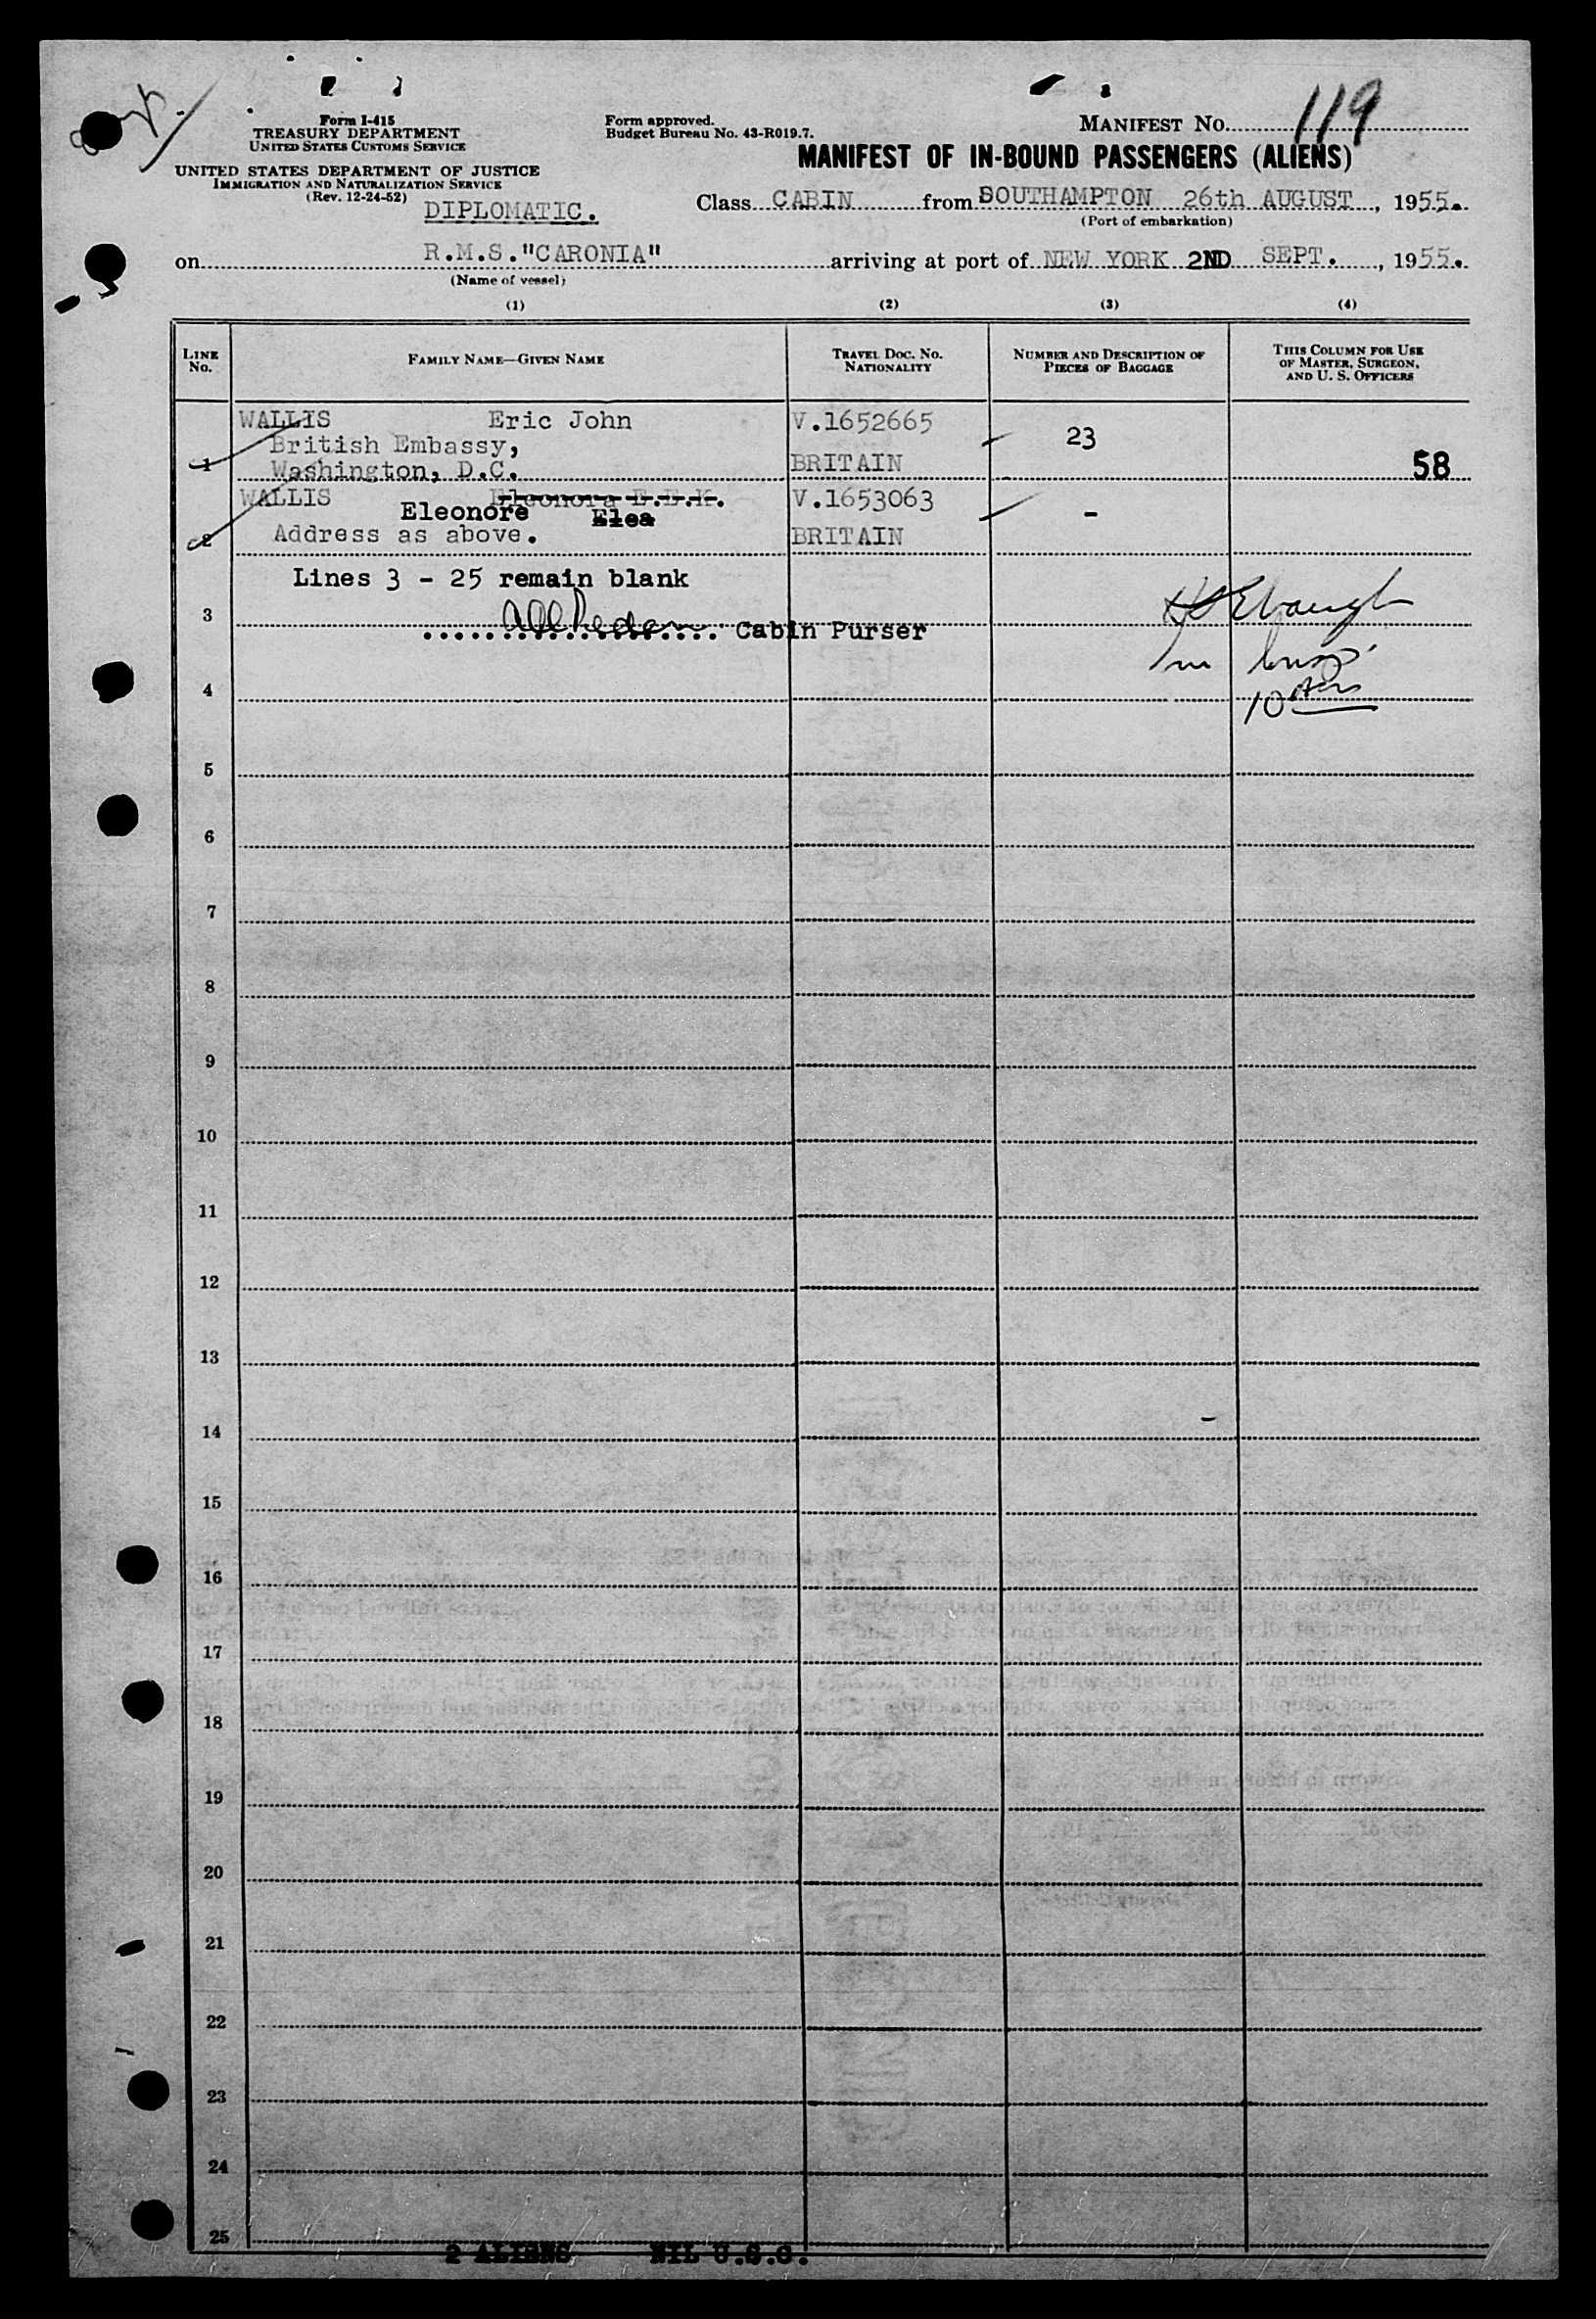 Form I-415
TREASURY DEPARTMENT
UNITED STATES CUSTOMS SERVICE
UNITED STATES DEPARTMENT OF JUSTICE
IMMIGRATION AND NATURALIZATION SERVICE
(Rev. 12-24-52)
Form approved.
Budget Bureau No. 43-R019.7.
MANIFEST NO. 119
MANIFEST OF IN-BOUND PASSENGERS (ALIENS)
DIPLOMATIC.
Class CABIN from SOUTHAMPTON 26th AUGUST, 1955.
(Port of embarkation)
on R.M.S."CARONIA" arriving at port of NEW YORK 2ND SEPT., 1955.
(Name of vessel)
(1) (2) (3) (4)
LINE No. FAMILY NAME—GIVEN NAME TRAVEL DOC. NO. NATIONALITY NUMBER AND DESCRIPTION OF PIECES OF BAGGAGE THIS COLUMN FOR USE OF MASTER, SURGEON, AND U. S. OFFICERS
WALLIS Eric John V.1652665
British Embassy, 23
1 Washington, D.C. BRITAIN 58
WALLIS Eleonora E.E.K. V.1653063
Eleonore Elea -
2 Address as above. BRITAIN
Lines 3 - 25 remain blank
3
Cabin Purser
4
10
5
6
7
8
9
10
11
12
13
14
15
16
17
18
19
20
21
22
23
24
25
2 ALIENS NIL U.S.C.